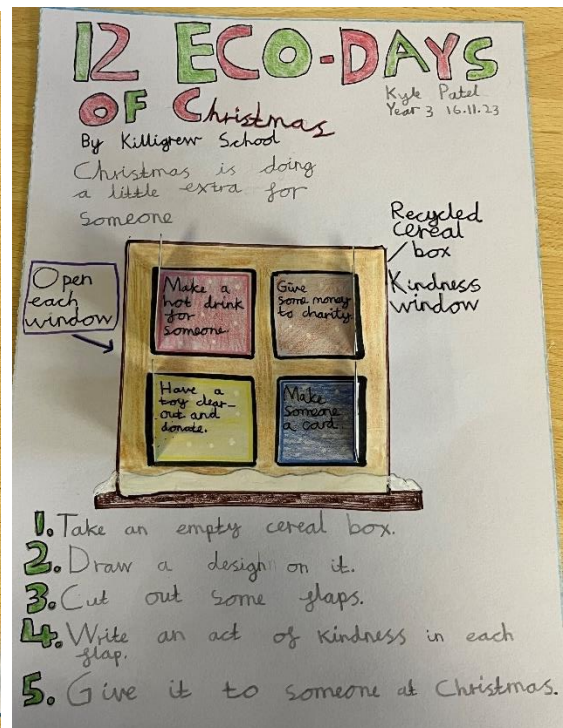 12 ECO-DAYS
OF Christmas
Kyle Patel
Year 3 16.11.23
By Killigrew School
Christmas is doing
a little extra for
someone
Recycled
cereal
box
Kindness
window
Open
each
window
Make a
hot drink
for
someone.
Give
some money
to charity.
Have a
toy clear-
out and
donate.
Make
someone
a card
1. Take an empty cereal box.
2. Draw a design on it.
3. Cut out some flaps.
4. Write an act of kindness in each
flap.
5. Give it to someone at Christmas.